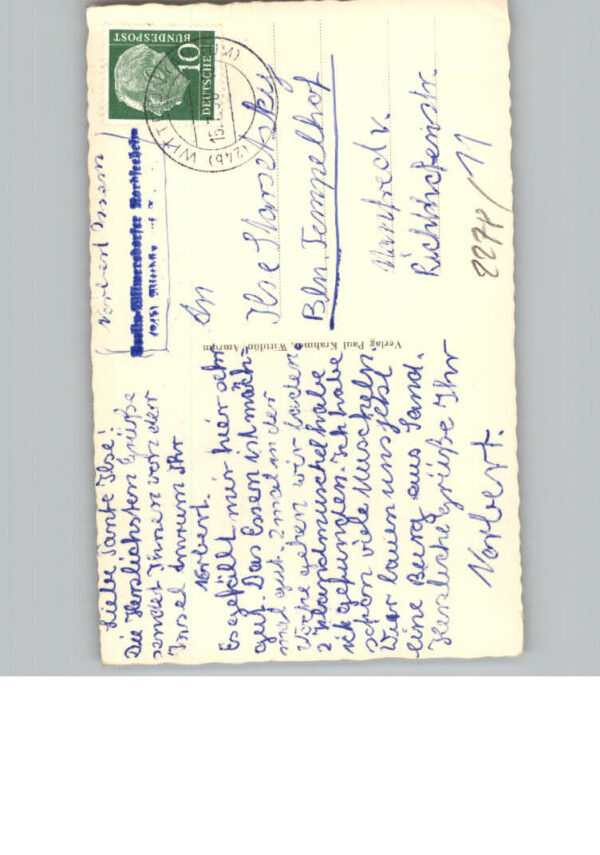 Liebe Tante Ilse!
Die Herzlichsten Grüße
sendet Ihnen von der
Insel Amrum Ihr
Norbert.
Es gefällt mir hier sehr
gut. Das Essen ist mäch-
tig gut. 2 mal in der
Woche gehen wir baden.
2 Islandmuschel habe
ich gefunden. Ich habe
schon viele Muscheln.
Wir bauen uns jetzt
eine Burg aus Sand.
Herzliche Grüße Ihr
Norbert.
Verlag Paul Krahmer, Wittdün/Amrum
Norbert
Berlin-Wilmersdorfer Nordseeheim
An
Ilse Staretzky
Bln. Tempelhof
Manfred v.
Richthofenstr.
11
2278/
DEUTSCHE
BUNDESPOST
10
(24b) WITTDÜN